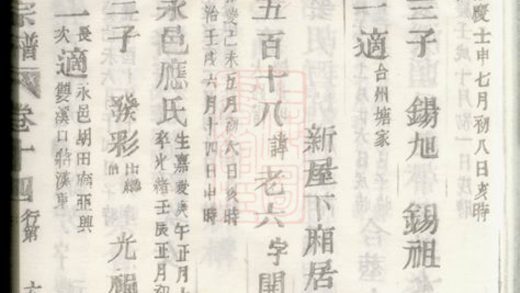 慶壬申七月初八日亥時
壬戌十月初一日戌時
三子 錫旭 錫祖
一適 台州塘家
新屋下廂居
五百十八 諱老六 字開
慶己未五月初八日亥時
治壬戌六月十四日申時
永邑應氏 生嘉慶庚午正月
卒光緒壬辰正月初
三子 發彩 出繼 光福
一適 長永邑胡田應亞興
次雙溪口蔣漢東
宗譜 卷十四 行第